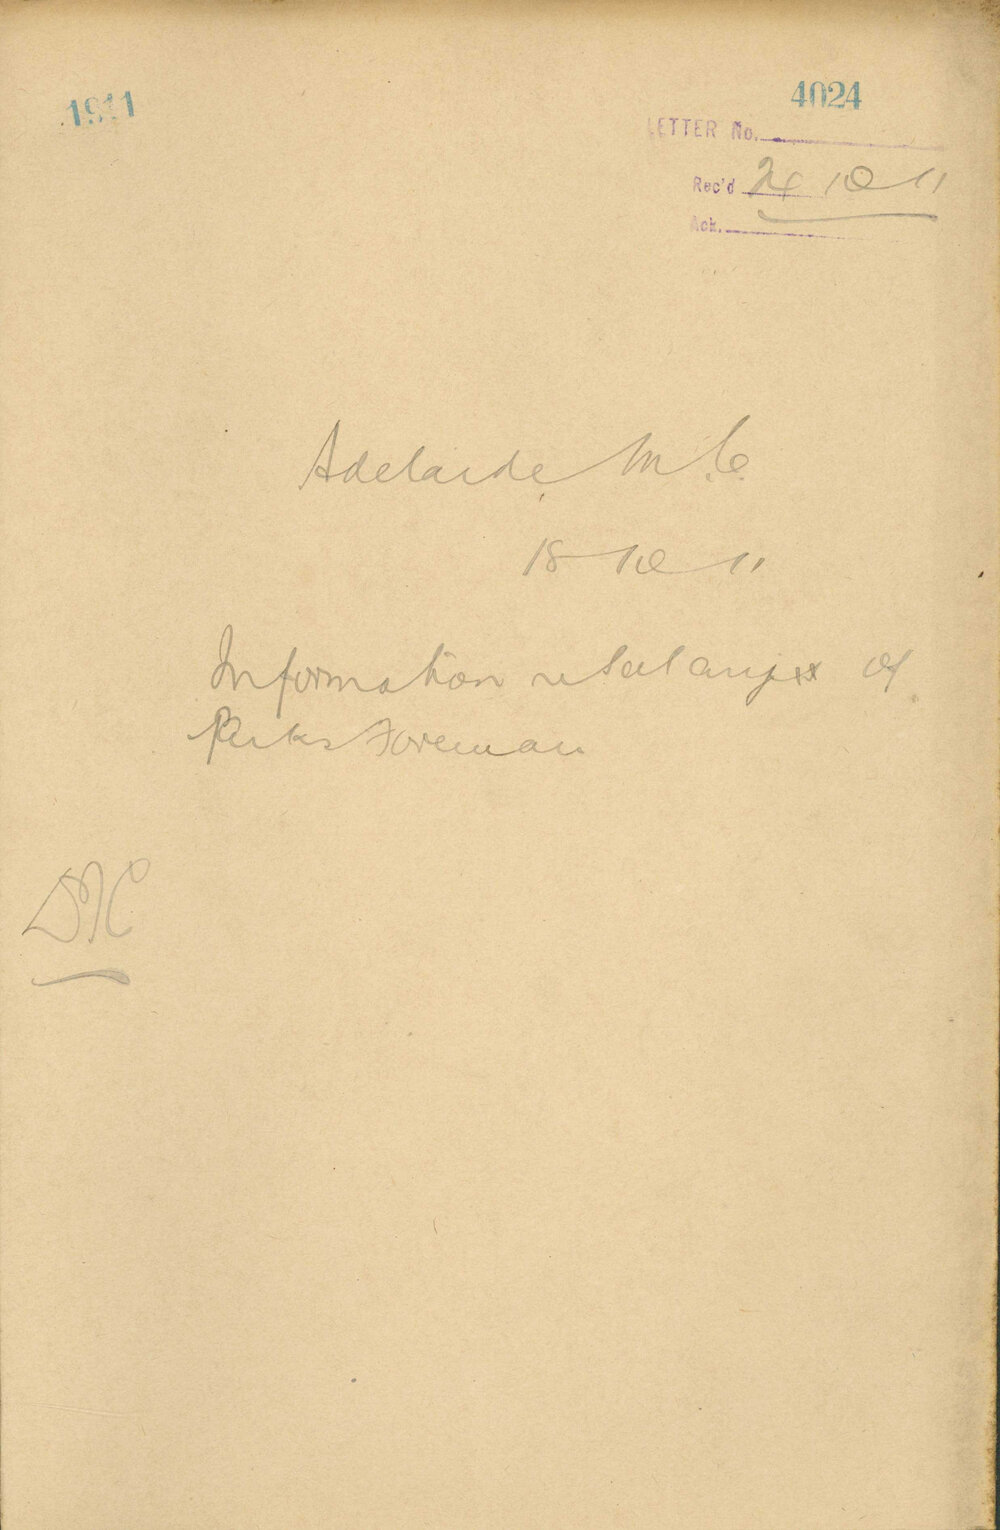 1911
4024
LETTER No.
Rec'd 24 10 11
Ack.
Adelaide M.C.
18 10 11
Information re Salary of
Parks Foreman